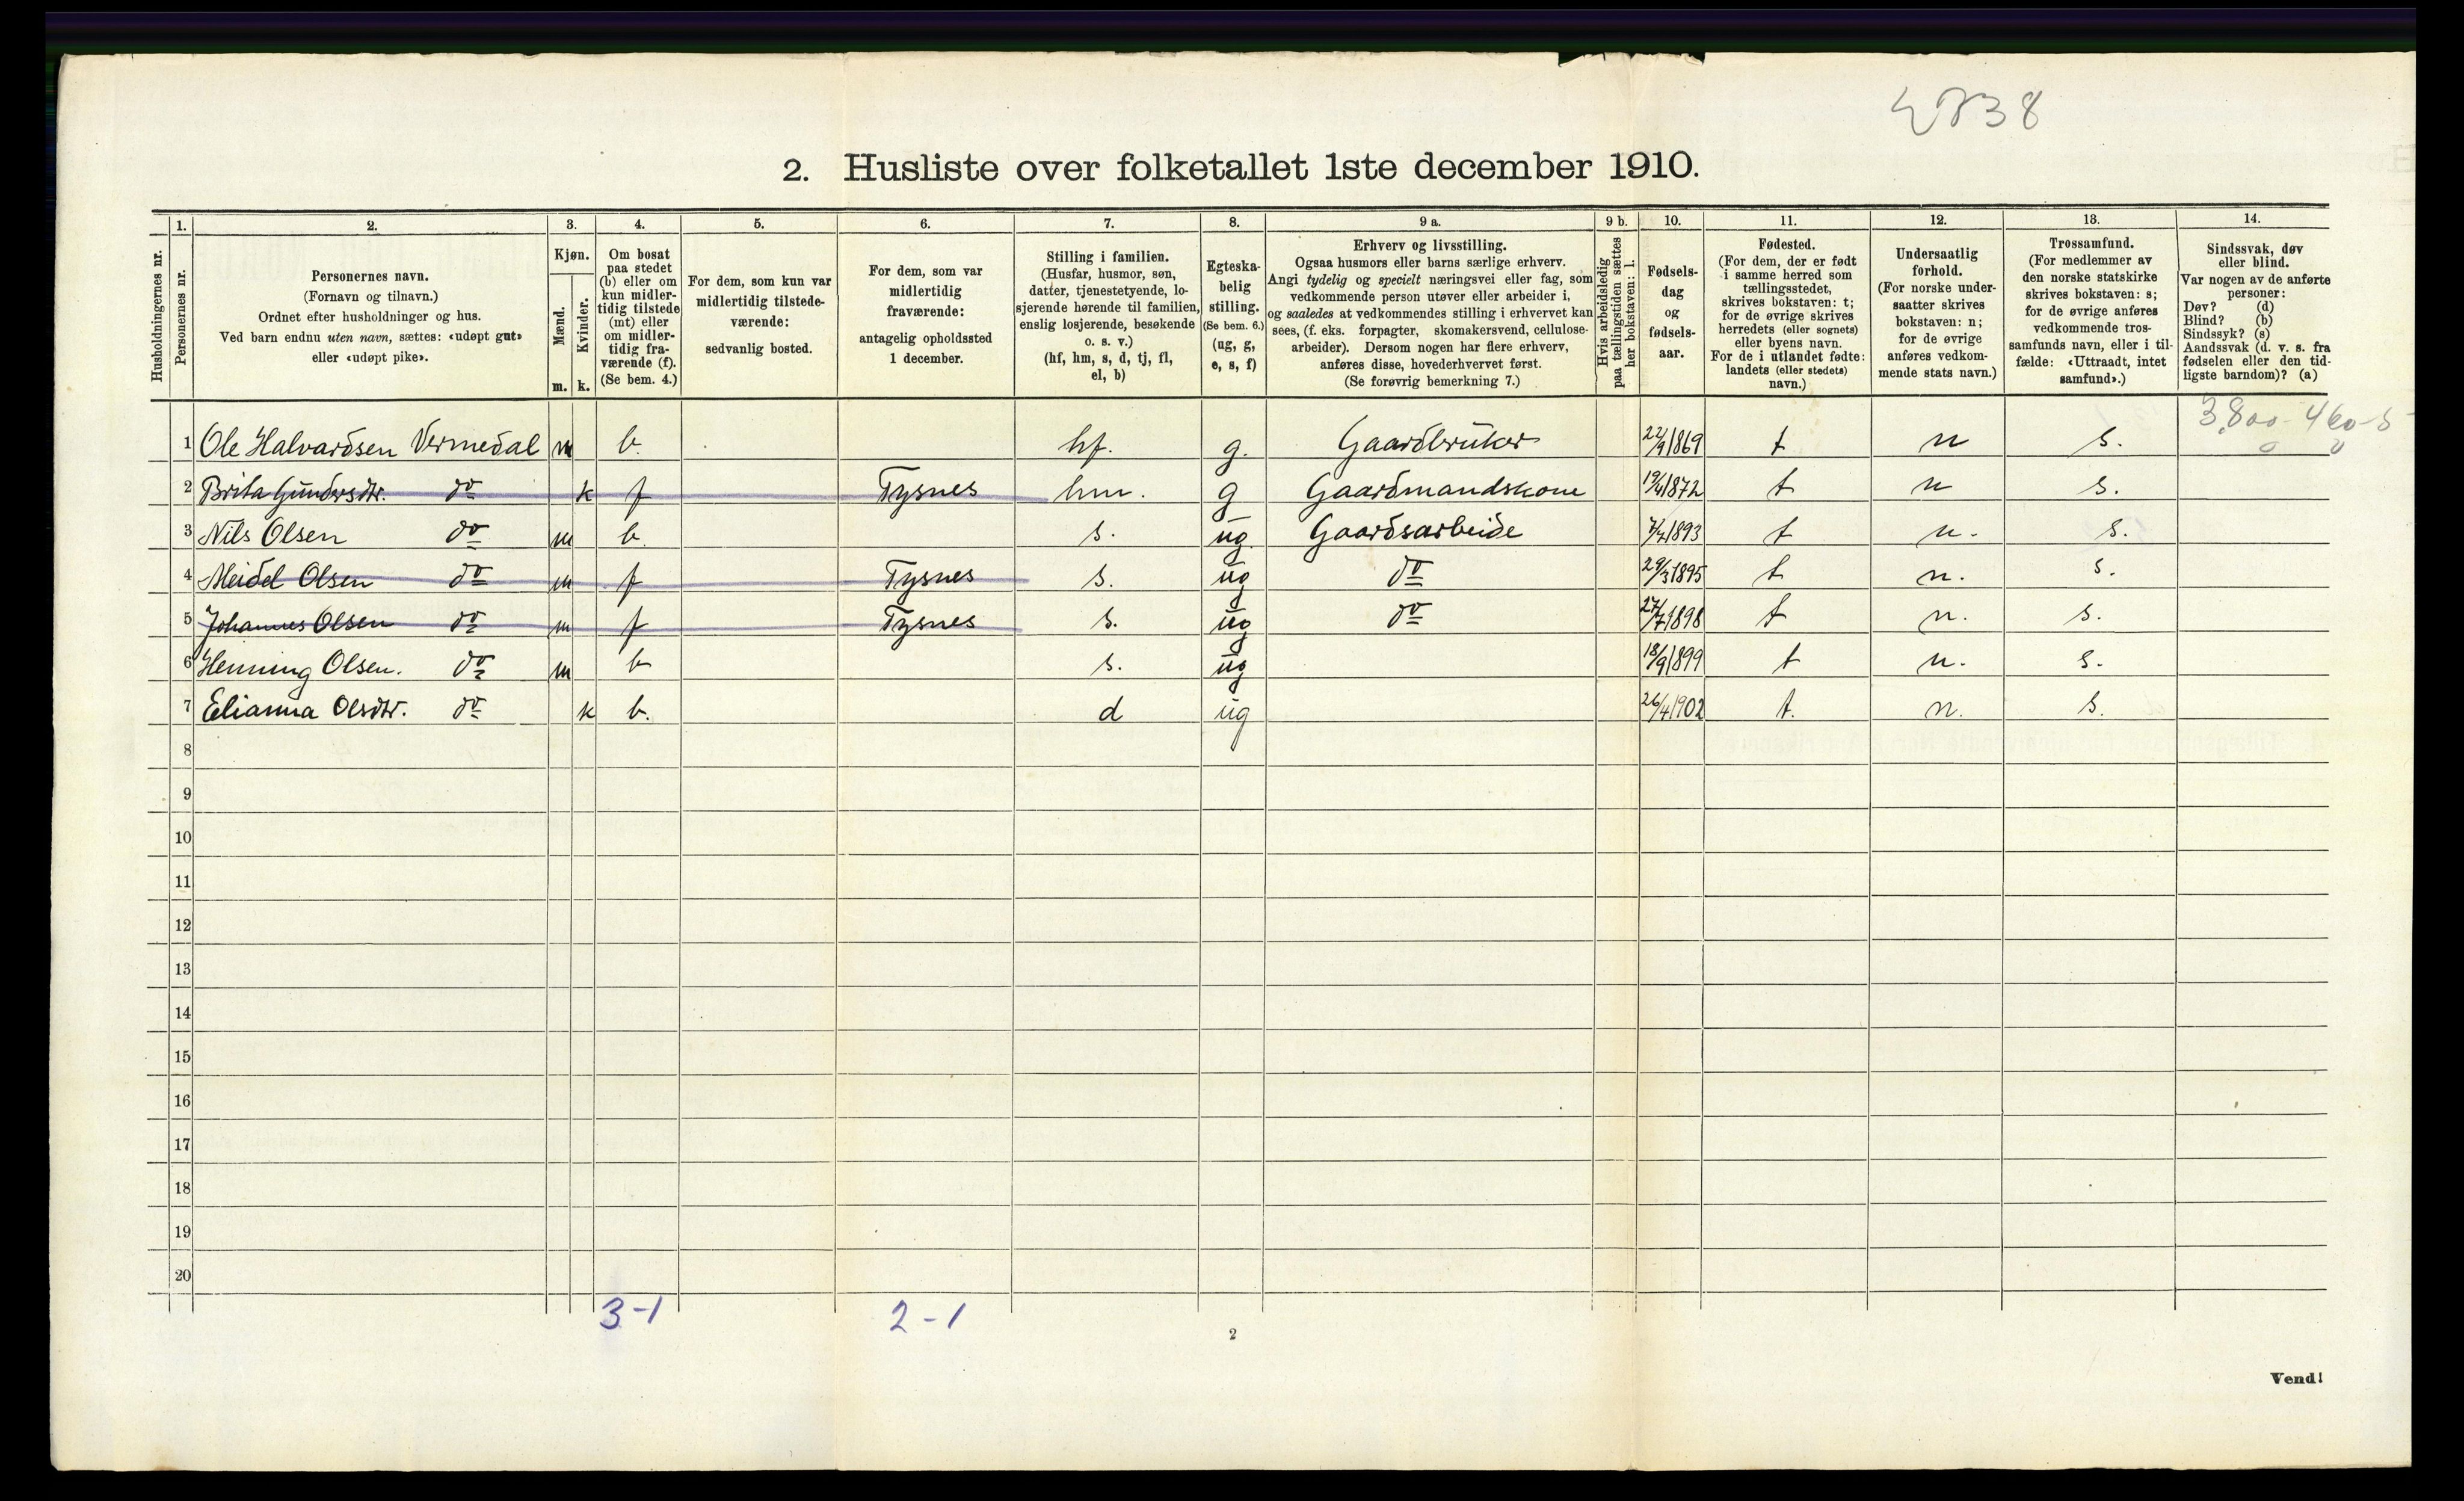 2838
2. Husliste over folketallet 1ste december 1910.
1. 2. 3. 4. 5. 6. 7. 8. 9 a. 9 b. 10. 11. 12. 13. 14.
Husholdningernes nr.
Personernes nr.
Personernes navn.
(Fornavn og tilnavn.)
Ordnet efter husholdninger og hus.
Ved barn endnu uten navn, sættes: «udøpt gut»
eller «udøpt pike».
Kjøn.
Mænd.
Kvinder.
m. k.
Om bosat
paa stedet
(b) eller om
kun midler-
tidig tilstede
(mt) eller
om midler-
tidig fra-
værende (f).
(Se bem. 4.)
For dem, som kun var
midlertidig tilstede-
værende:
sedvanlig bosted.
For dem, som var
midlertidig
fraværende:
antagelig opholdssted
1 december.
Stilling i familien.
(Husfar, husmor, søn,
datter, tjenestetyende, lo-
sjerende hørende til familien,
enslig losjerende, besøkende
o. s. v.)
(hf, hm, s, d, tj, fl,
el, b)
Egteska-
belig
stilling.
(Se bem. 6.)
(ug, g,
e, s, f)
Erhverv og livsstilling.
Ogsaa husmors eller barns særlige erhverv.
Angi tydelig og specielt næringsvei eller fag, som
vedkommende person utøver eller arbeider i,
og saaledes at vedkommendes stilling i erhvervet kan
sees, (f. eks. forpagter, skomakersvend, cellulose-
arbeider). Dersom nogen har flere erhverv,
anføres disse, hovederhvervet først.
(Se forøvrig bemerkning 7.)
Hvis arbeidsledig
paa tællingstiden sættes
her bokstaven: l.
Fødsels-
dag
og
fødsels-
aar.
Fødested.
(For dem, der er født
i samme herred som
tællingsstedet,
skrives bokstaven: t;
for de øvrige skrives
herredets (eller sognets)
eller byens navn.
For de i utlandet fødte:
landets (eller stedets)
navn.)
Undersaatlig
forhold.
(For norske under-
saatter skrives
bokstaven: n;
for de øvrige
anføres vedkom-
mende stats navn.)
Trossamfund.
(For medlemmer av
den norske statskirke
skrives bokstaven: s;
for de øvrige anføres
vedkommende tros-
samfunds navn, eller i til-
fælde: «Uttraadt, intet
samfund».)
Sindssvak, døv
eller blind.
Var nogen av de anførte
personer:
Døv? (d)
Blind? (b)
Sindssyk? (s)
Aandssvak (d. v. s. fra
fødselen eller den tid-
ligste barndom)? (a)
3,800-460-5
0 0
1 Ole Halvardsen Vermedal m b. hf. g. Gaardbruker 22/9 1869 t n s.
2 Brita Gundersdtr. do k f Tysnes hm. g Gaardmandskone 19/4 1872 t n s.
3 Nils Olsen do m b. s. ug. Gaardsarbeide 7/7 1893 t n. s.
4 Meidel Olsen do m f Tysnes s. ug do 29/3 1895 t n. s.
5 Johannes Olsen do m f Tysnes s. ug do 27/7 1898 t n. s.
6 Henning Olsen. do m b s. ug 18/9 1899 t n. s.
7 Elianna Olsdtr. do k b. d ug 26/4 1902 t. n. s.
8
9
10
11
12
13
14
15
16
17
18
19
20
3-1 2-1
2
Vend!